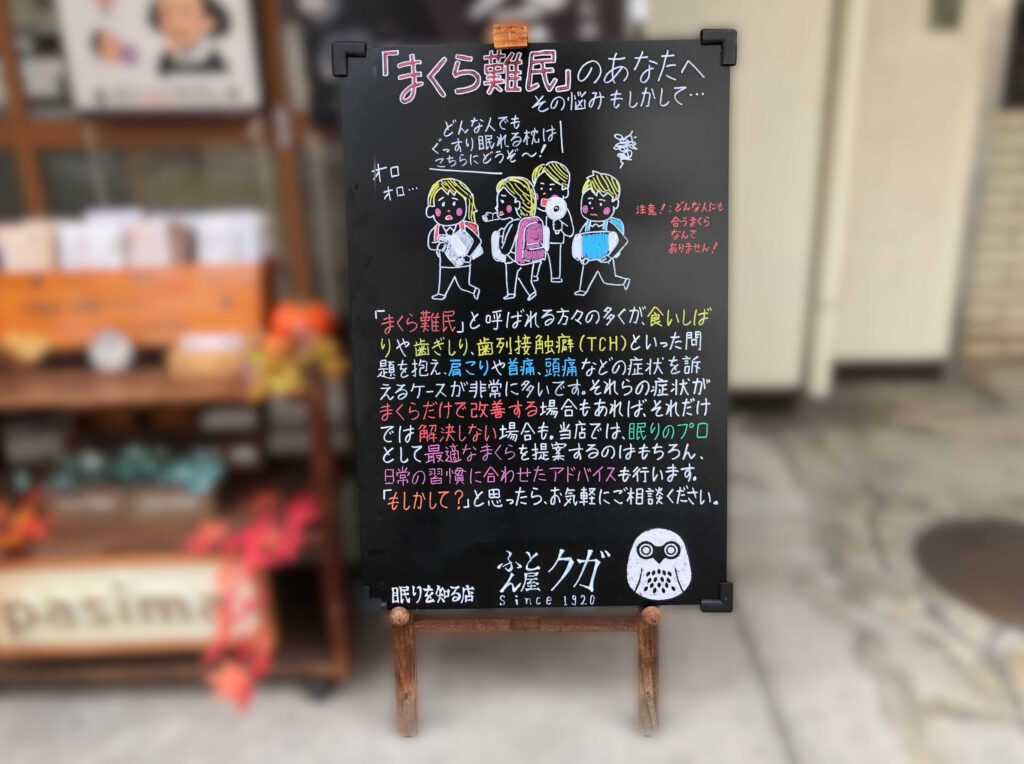 「まくら難民」のあなたへ
その悩みもしかして…
どんな人でも
ぐっすり眠れる枕は
こちらにどうぞ〜!
オロ
オロ…
注意!:どんな人にも
合うまくら
なんて
ありません!
「まくら難民」と呼ばれる方々の多くが、食いしば
りや歯ぎしり、歯列接触癖(TCH)といった問
題を抱え、肩こりや首痛、頭痛などの症状を訴
えるケースが非常に多いです。それらの症状が
まくらだけで改善する場合もあれば、それだけ
では解決しない場合も。当店では、眠りのプロ
として最適なまくらを提案するのはもちろん、
日常の習慣に合わせたアドバイスも行います。
「もしかして?」と思ったら、お気軽にご相談ください。
眠りを知る店
ふとん屋クガ
Since 1920
pasima